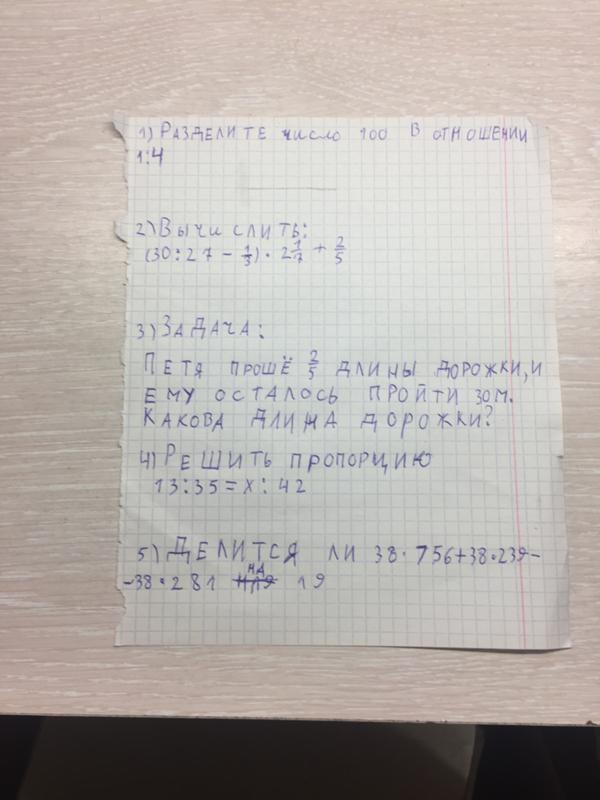 1) РАЗДЕЛИТЕ число 100 В ОТНОШЕНИИ
1:4
2) Вычислить:
(30:27 - 1/3) · 2 1/7 + 2/5
3) ЗАДАЧА:
ПЕТЯ ПРОШЁ 2/5 ДЛИНЫ ДОРОЖКИ, И
ЕМУ ОСТАЛОСЬ ПРОЙТИ 30М.
КАКОВА ДЛИНА ДОРОЖКИ?
4) РЕШИТЬ ПРОПОРЦИЮ
13:35=X:42
5) ДЕЛИТСЯ ЛИ 38·756+38·239-
-38·281 НА 19